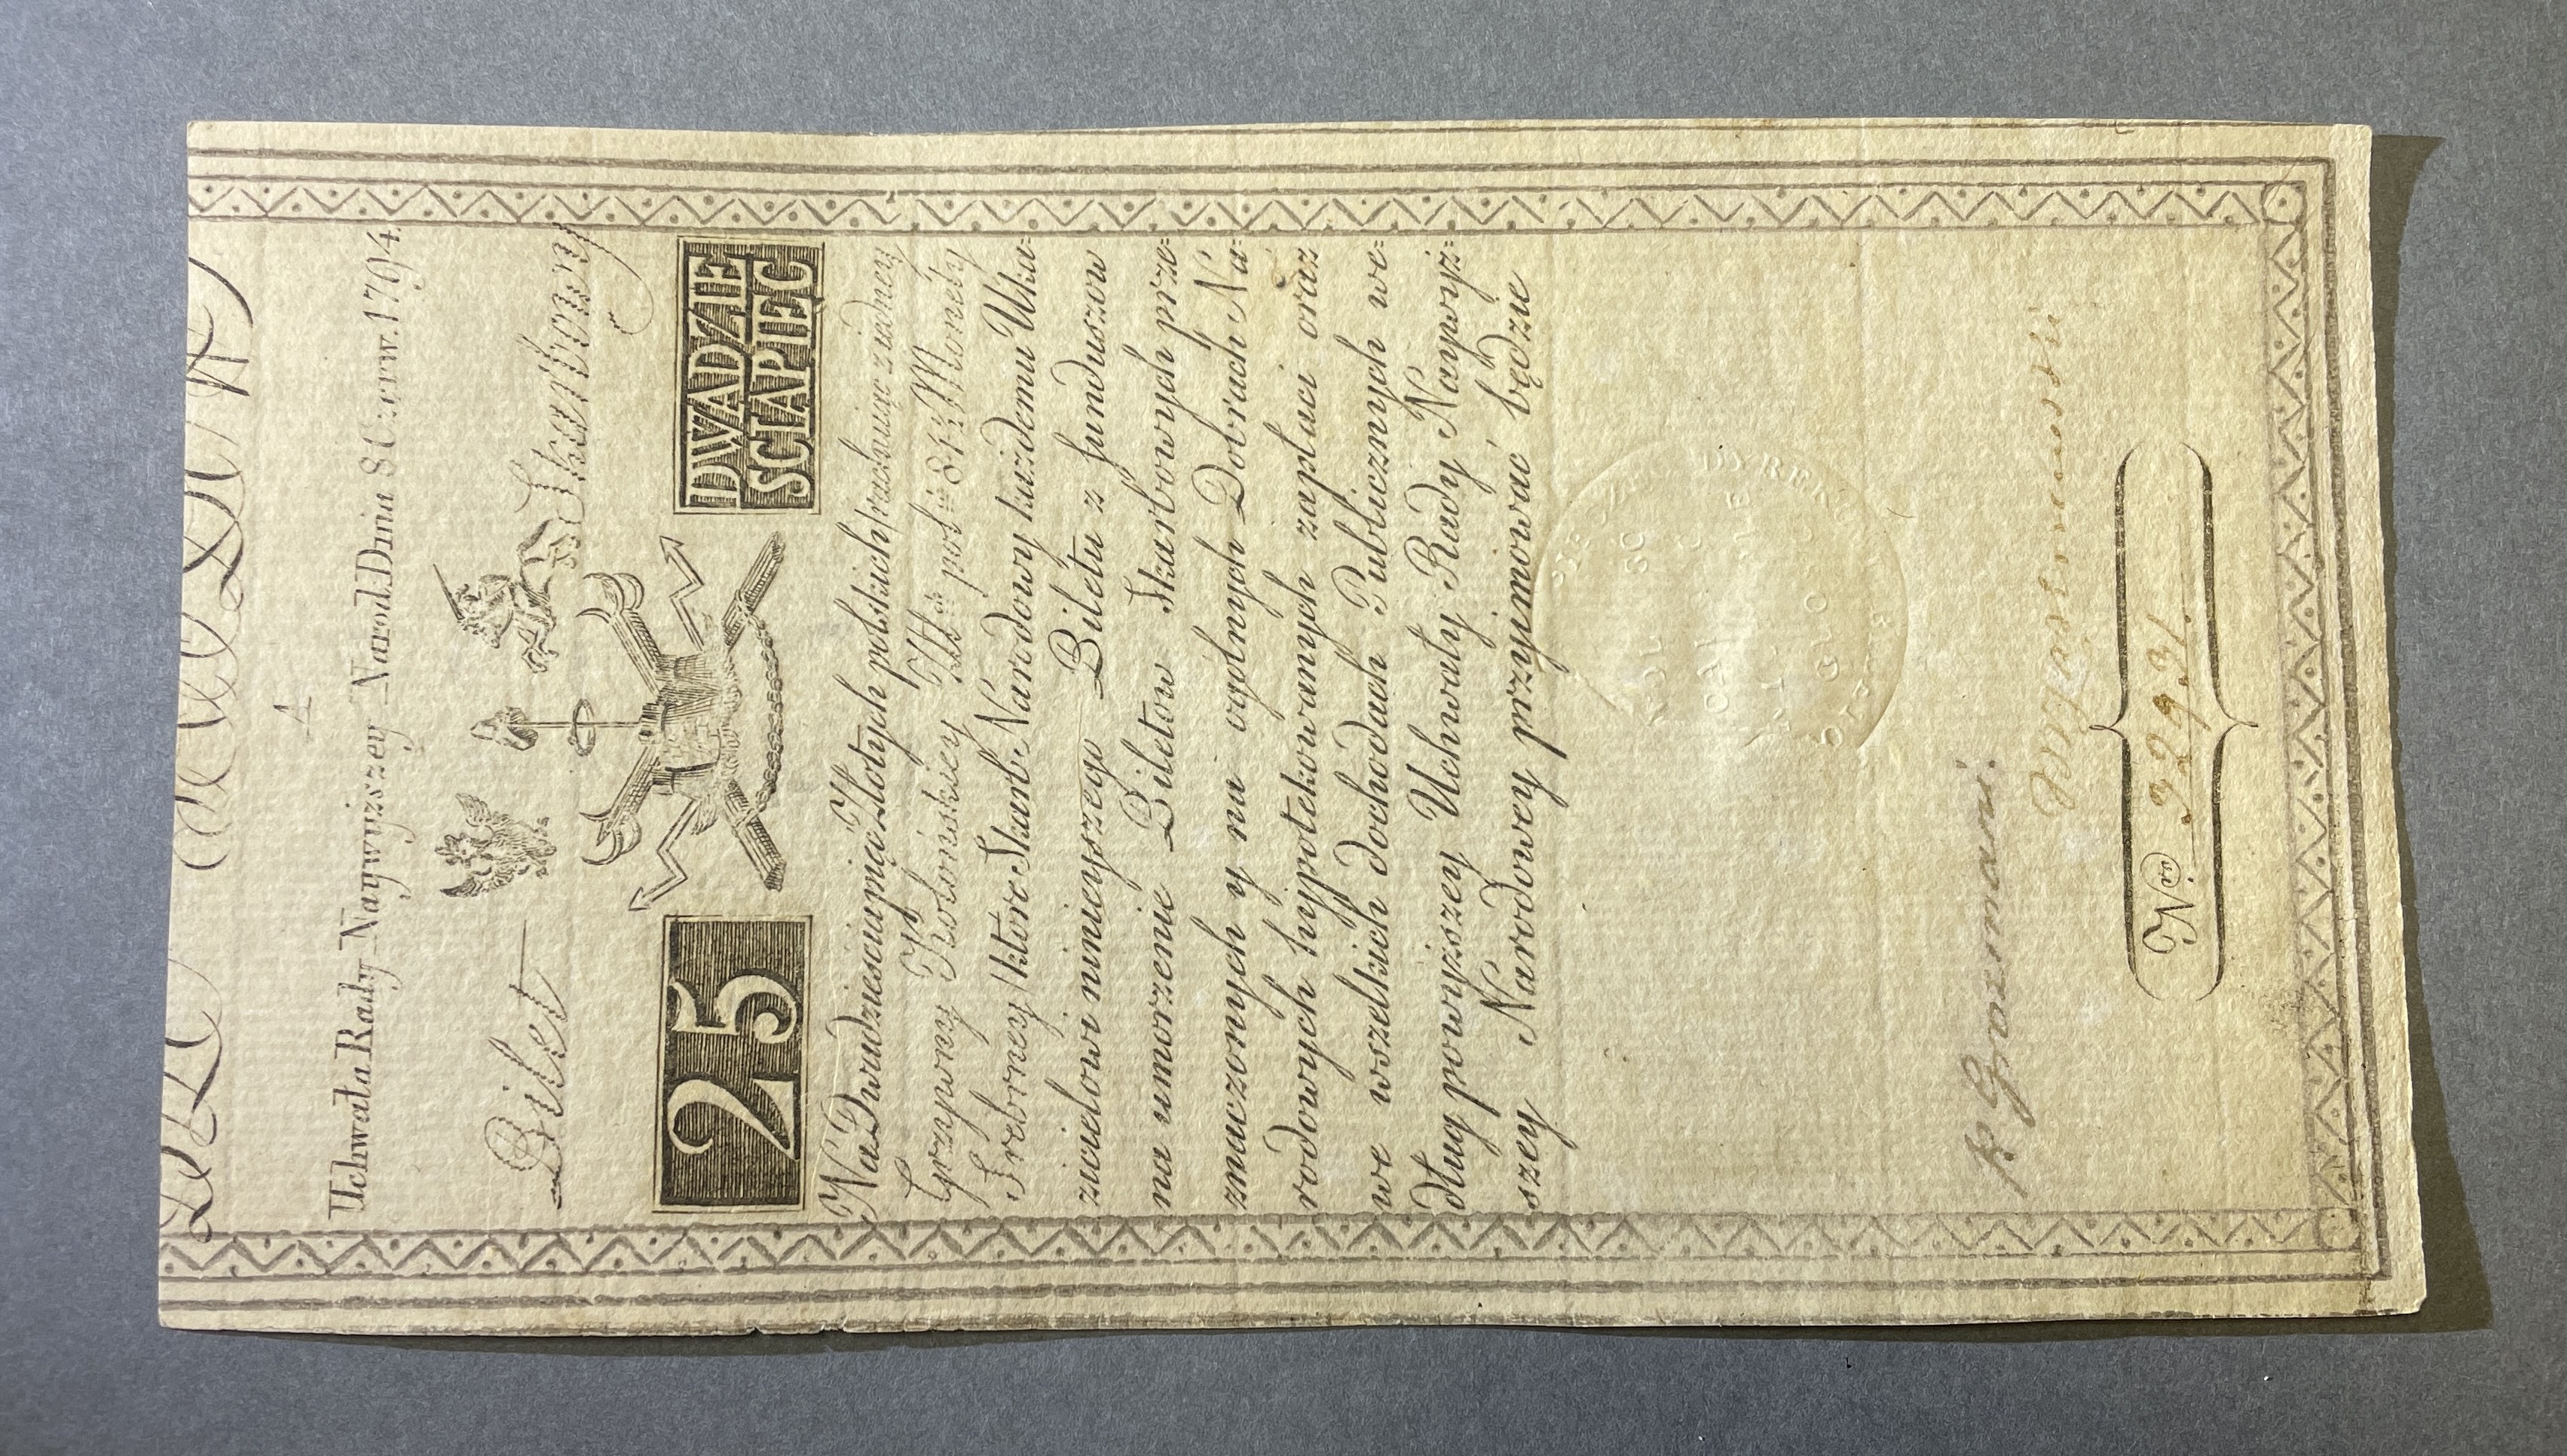 A
Uchwała Rady Naywyższey Narod. Dnia 8 Czerw. 1794.
Bilet Skarbowy
25 DWADZIE
SCIAPIĘC
Na Dwadzieścia pięć Złotych polskich / rachuiąc z iedney
Grzywny Kolońskiey Złł. pol. 84½ Monety
Srebrney / które Skarb Narodowy każdemu Uka=
zicielowi ninieyszego Biletu z funduszow
na umorzenie Biletow Skarbowych prze=
znaczonych y na ogolnych Dobrach Na=
rodowych hyppotekowanych zapłaci oraz
we wszelkich dochodach Publicznych we=
dług powyższey Uchwały Rady Naywyż=
szey Narodowey przyimować będzie
DYREKC
Nro 32931.